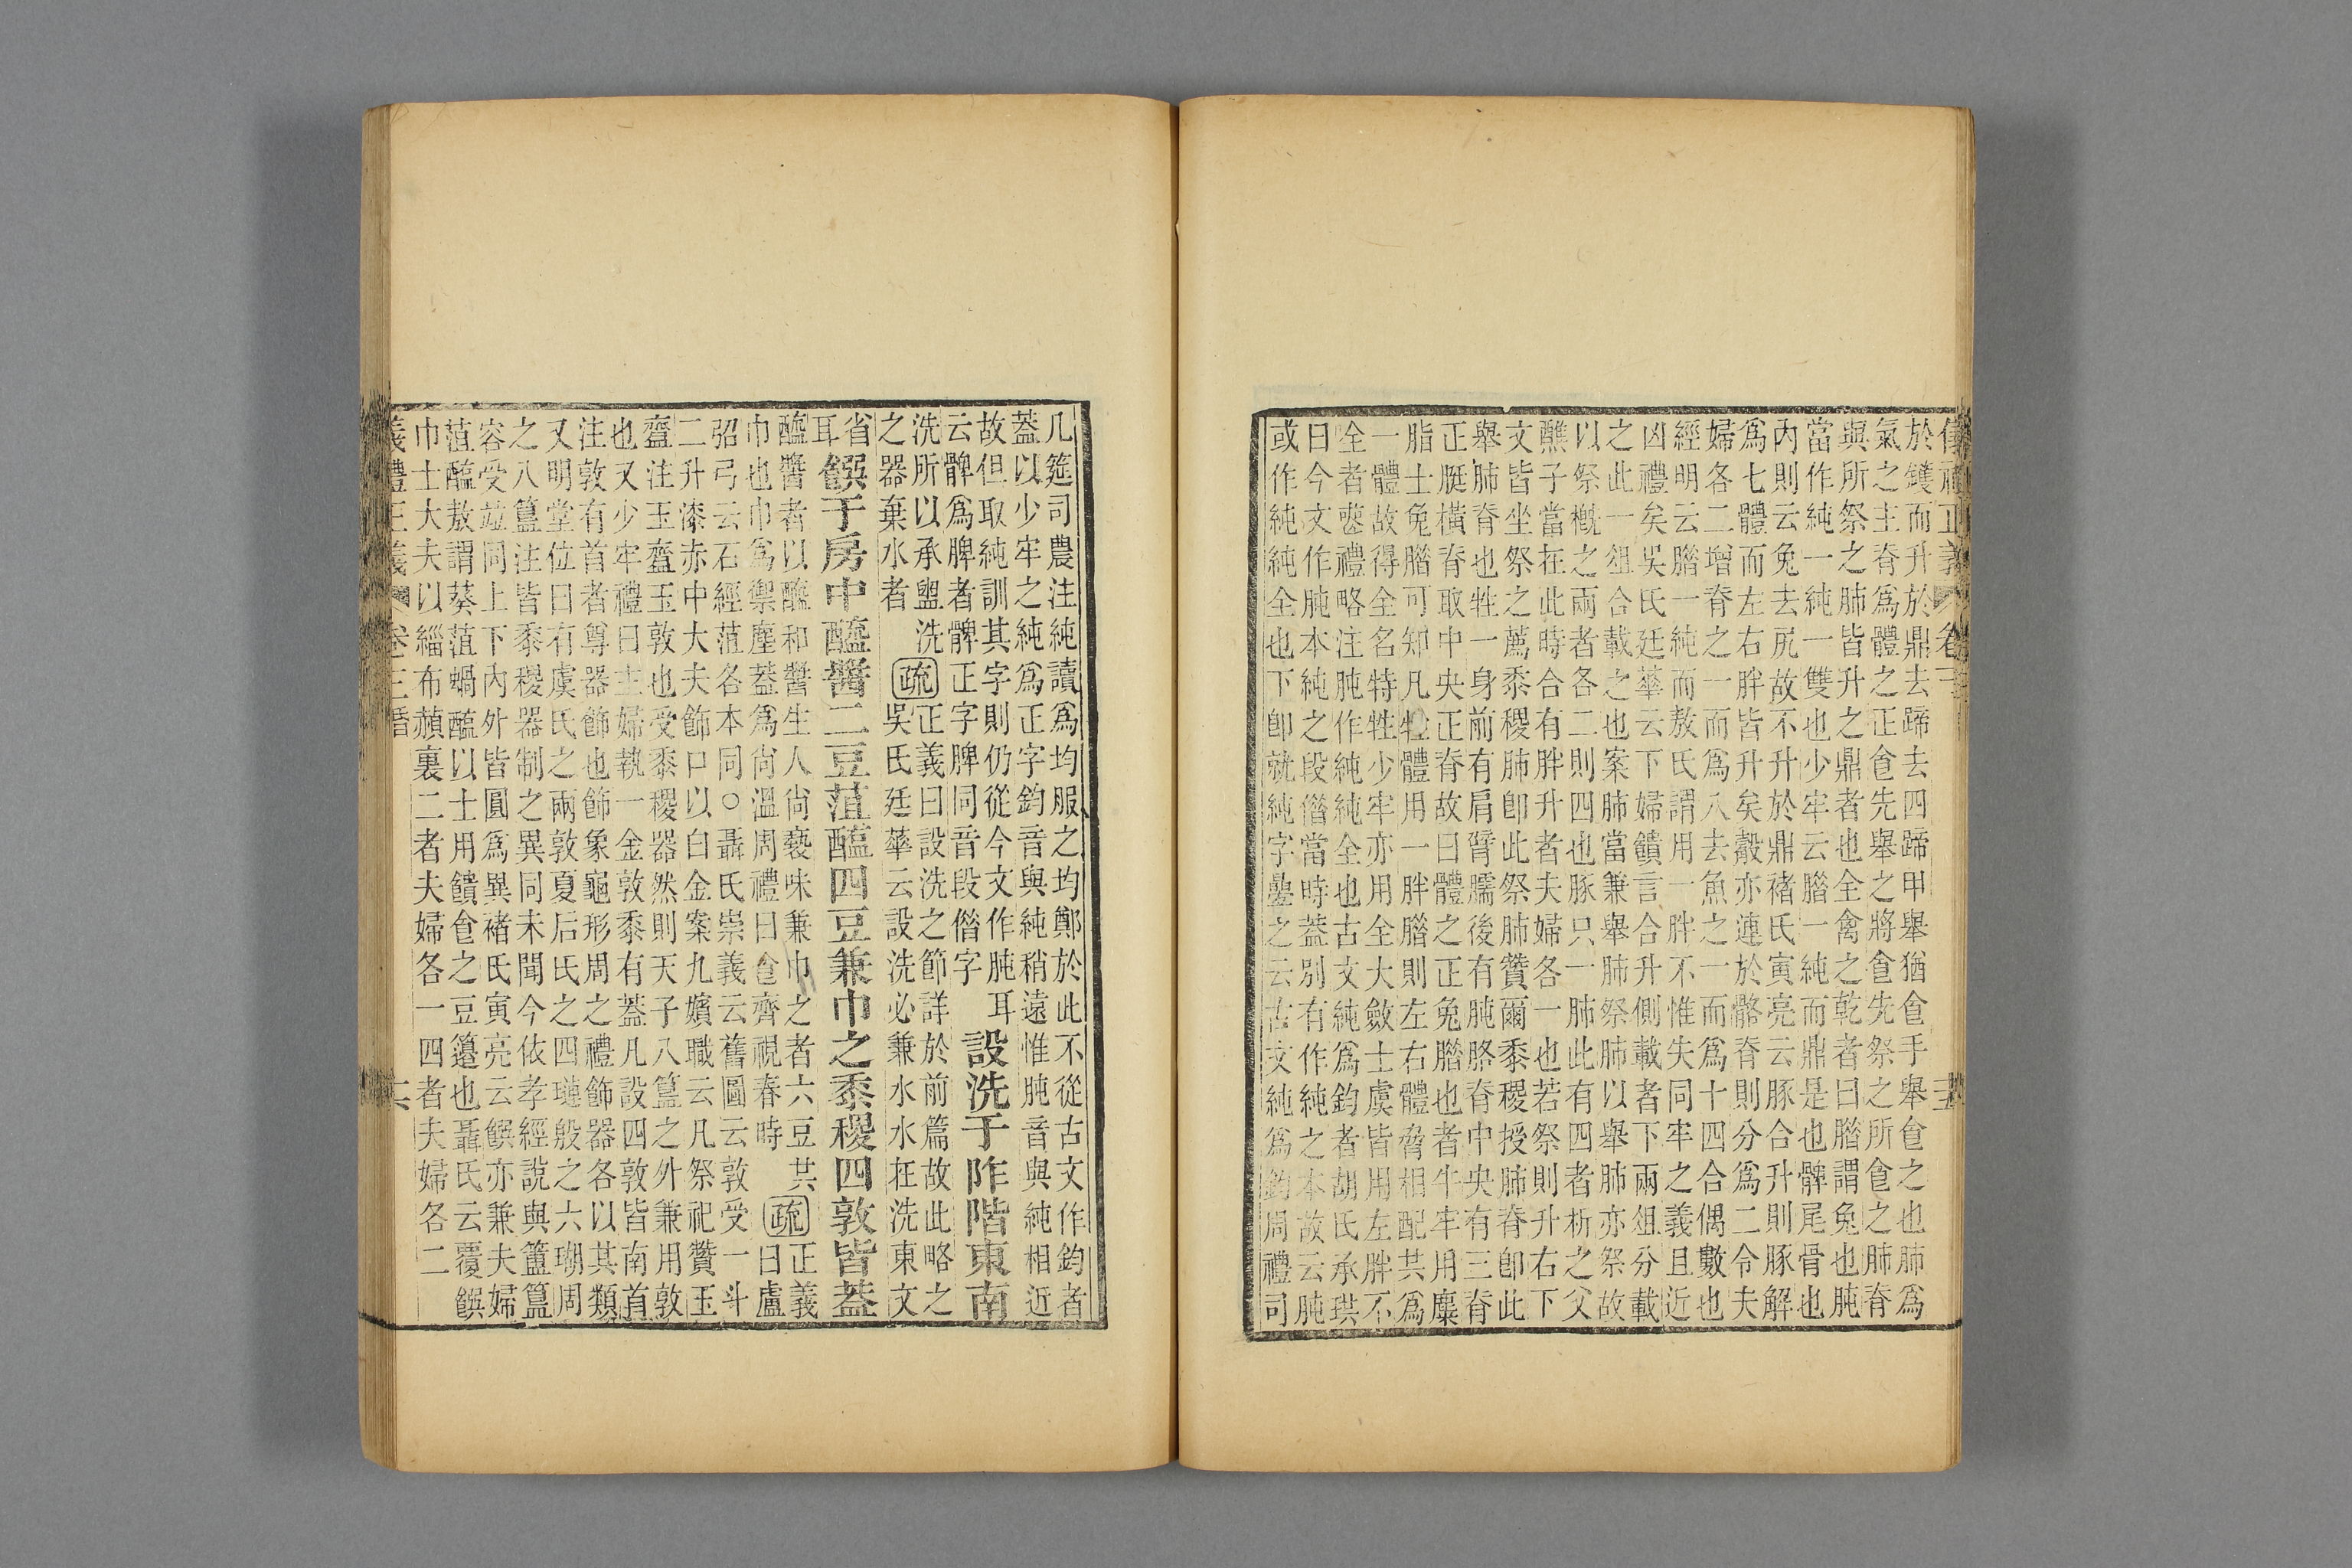 於鑊而升於鼎去蹄去四蹄甲舉猶食手舉食之也肺爲
氣之主脊爲體之正食先舉之將食先祭之所食之肺脊
與所祭之肺皆升之鼎者也全禽之乾者曰腊謂兔也肫
當作純一純一雙也少牢云腊一純而鼎是也髀尾骨也
內則云兔去尻故不升於鼎褚氏寅亮云豚合升則豚解
爲七體而左右胖皆升矣觳亦連於骼脊則分爲二令夫
婦各二增脊之一而爲八去魚之一而爲十四合偶數也
經明云腊一純而敖氏謂用一胖不惟失同牢之義且近
凶禮矣吳氏廷華云下婦饋言合升側載者下兩俎分載
之此一俎合載之也案肺當兼舉肺祭肺以舉肺亦祭故
以祭概之兩者各二則四也豚只一肺此有四者析之父
醮子當在此時合有胖升者夫婦各一也若祭則升右下
文皆坐祭之薦黍稷肺卽此祭肺贊爾黍稷授肺脊卽此
舉肺脊也牲一身前有肩臂臑後有肫胳脊中央有三脊
正脡橫脊取中央正脊故曰體之正兔腊也者牛牢用麋
脂士兔腊可知凡牲體用一胖腊則左右體脅相配共爲
一體故得全名特牲少牢亦用全大斂士虞皆用左胖不
全者喪禮略注肫作純純全也古文純爲鈞者胡氏承珙
曰今文作肫本純之段僭當時蓋別有作純之本故云肫
或作純純全也下卽就純字釁之云古文純爲鈞周禮司
几筵司農注純讀爲均服之均鄭於此不從古文作鈞者
蓋以少牢之純爲正字鈞音與純稍遠惟肫音與純相近
故但取純訓其字則仍從今文作肫耳
云髀爲脾者髀正字脾同音段僭字
設洗于阼階東南
洗所以承盥洗
之器棄水者
疏
正義曰設洗之節詳於前篇故此略之
吳氏廷華云設洗必兼水水在洗東文
省
耳
饌于房中醯醬二豆菹醢四豆兼巾之黍稷四敦皆蓋
醯醬者以醯和醬生人尙褻味兼巾之者六豆共
巾也巾爲禦塵蓋爲尙溫周禮曰食齊視春時
疏
正義
曰盧
弨弓云石經菹各本同○聶氏崇義云舊圖云敦受一斗
二升漆赤中大夫飾口以白金案九嬪職云凡祭祀贊玉
齍注玉齍玉敦也受黍稷器然則天子八簋之外兼用敦
也又少牢禮曰主婦執一金敦黍有蓋凡設四敦皆南首
注敦有首者尊器飾也飾象龜形周之禮飾器各以其類
又明堂位曰有虞氏之兩敦夏后氏之四璉殷之六瑚周
之八簋注皆黍稷器制之異同未聞今依孝經說與簠簋
容受竝同上下內外皆圓爲異褚氏寅亮云饌亦兼夫婦
菹醢敖謂葵菹蝸醢以士用饋食之豆籩也聶氏云覆饌
巾士大夫以緇布赬裏二者夫婦各一四者夫婦各二